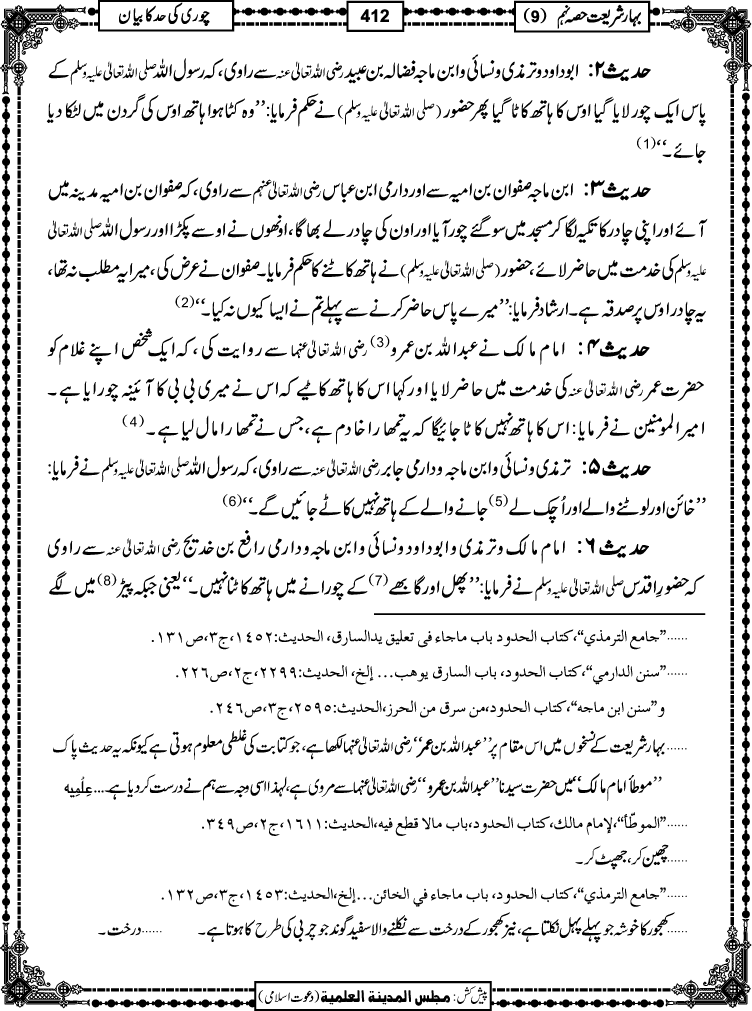 بہارِ شریعت حصہ نہم (9)
412
چوری کی حد کا بیان
حدیث ۲: ابو داود و ترمذی و نسائی و ابن ماجہ فضالہ بن عبید رضی اللہ تعالیٰ عنہ سے راوی، کہ رسول اللہ صلی اللہ تعالیٰ علیہ وسلم کے
پاس ایک چور لایا گیا اوس کا ہاتھ کاٹا گیا پھر حضور (صلی اللہ تعالیٰ علیہ وسلم) نے حکم فرمایا: ’’وہ کٹا ہوا ہاتھ اوس کی گردن میں لٹکا دیا
جائے۔‘‘(1)
حدیث ۳: ابن ماجہ صفوان بن امیہ سے اور دارمی ابن عباس رضی اللہ تعالیٰ عنہم سے راوی، کہ صفوان بن امیہ مدینہ میں
آئے اور اپنی چادر کا تکیہ لگا کر مسجد میں سوگئے چور آیا اور اون کی چادر لے بھاگا، اونھوں نے اوسے پکڑا اور رسول اللہ صلی اللہ تعالیٰ
علیہ وسلم کی خدمت میں حاضر لائے، حضور (صلی اللہ تعالیٰ علیہ وسلم) نے ہاتھ کاٹنے کا حکم فرمایا۔ صفوان نے عرض کی، میرا یہ مطلب نہ تھا،
یہ چادر اوس پر صدقہ ہے۔ ارشاد فرمایا: ’’میرے پاس حاضر کرنے سے پہلے تم نے ایسا کیوں نہ کیا۔‘‘(2)
حدیث ۴: امام مالک نے عبداللہ بن عمرو(3) رضی اللہ تعالیٰ عنہما سے روایت کی، کہ ایک شخص اپنے غلام کو
حضرت عمر رضی اللہ تعالیٰ عنہ کی خدمت میں حاضر لایا اور کہا اس کا ہاتھ کاٹیے کہ اس نے میری بی بی کا آئینہ چورایا ہے۔
امیر المومنین نے فرمایا: اس کا ہاتھ نہیں کاٹا جائیگا کہ یہ تمھارا خادم ہے، جس نے تمھارا مال لیا ہے۔(4)
حدیث ۵: ترمذی و نسائی و ابن ماجہ و دارمی جابر رضی اللہ تعالیٰ عنہ سے راوی، کہ رسول اللہ صلی اللہ تعالیٰ علیہ وسلم نے فرمایا:
’’خائن اور لوٹنے والے اور اُچک لے(5) جانے والے کے ہاتھ نہیں کاٹے جائیں گے۔‘‘(6)
حدیث ۶: امام مالک و ترمذی و ابو داود و نسائی و ابن ماجہ و دارمی رافع بن خدیج رضی اللہ تعالیٰ عنہ سے راوی
کہ حضورِ اقدس صلی اللہ تعالیٰ علیہ وسلم نے فرمایا: ’’پھل اور گابھے(7) کے چورانے میں ہاتھ کاٹنا نہیں۔‘‘ یعنی جبکہ پیڑ(8) میں لگے
......”جامع الترمذي“، کتاب الحدود باب ماجاء فی تعلیق یدالسارق، الحدیث: ١٤٥٢، ج٣، ص١٣١.
......”سنن الدارمي“، کتاب الحدود، باب السارق یوهب... إلخ، الحدیث: ٢٢٩٩، ج٢، ص٢٢٦.
و”سنن ابن ماجه“، کتاب الحدود، من سرق من الحرز، الحدیث: ٢٥٩٥، ج٣، ص٢٤٦.
......بہار شریعت کے نسخوں میں اس مقام پر ’’عبداللہ بن عمر‘‘ رضی اللہ تعالیٰ عنہما لکھا ہے، جو کتابت کی غلطی معلوم ہوتی ہے کیونکہ یہ حدیث پاک
’’موطأ امام مالک‘‘ میں حضرت سیدنا ’’عبداللہ بن عمرو‘‘ رضی اللہ تعالیٰ عنہما سے مروی ہے، لہٰذا اسی وجہ سے ہم نے درست کر دیا ہے۔... عِلْمِیہ
......”الموطّأ“، لإمام مالك، کتاب الحدود، باب مالا قطع فیه، الحدیث: ١٦١١، ج٢، ص٣٤٩.
......چھین کر، جھپٹ کر۔
......”جامع الترمذي“، کتاب الحدود، باب ماجاء في الخائن...إلخ، الحدیث: ١٤٥٣، ج٣، ص١٣٢.
......کھجور کا خوشہ جو پہلے پہل نکلتا ہے، نیز کھجور کے درخت سے نکلنے والا سفید گوند جو چربی کی طرح کا ہوتا ہے۔ ......درخت۔
پیش کش: مجلس المدينة العلمية (دعوتِ اسلامی)